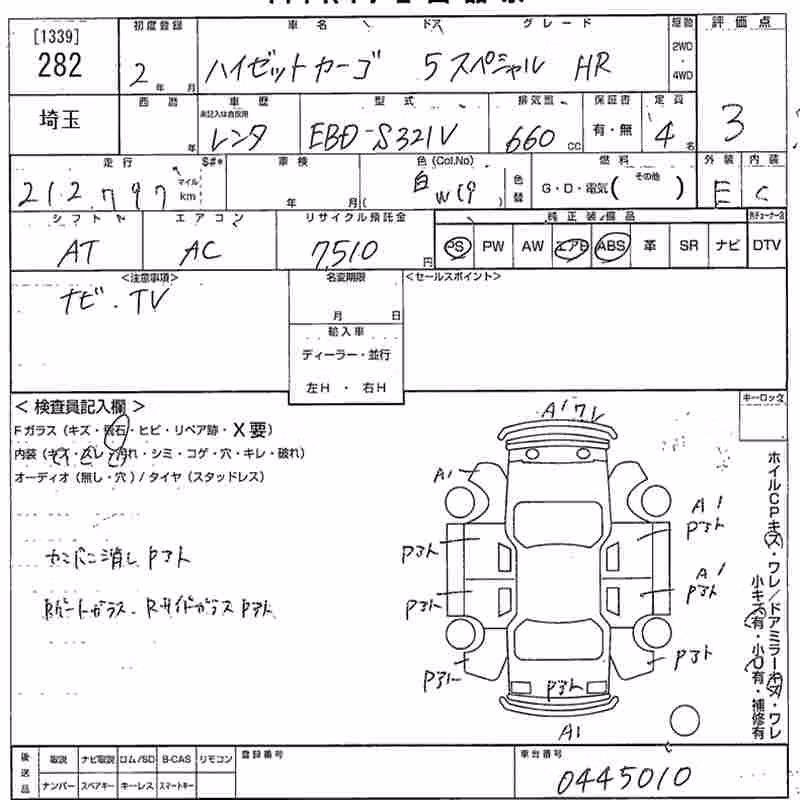 [1339]
282
初度登録
2年 月
車名 ドア グレード
ハイゼットカーゴ 5 スペシャル HR
駆動
2WD
・
4WD
評価点
3
埼玉
西暦
年
車歴
未記入は自家用
レンタ
型式
EBD-S321V
排気量
660 CC
車検有無
有・無
定員
4名
走行 $#*
212,797 マイル km
車検
年 月
色(Col.No)
白 (W19)
色替
燃料
G・D・電気( その他 )
外装
E
内装
C
シフト
AT
エアコン
AC
リサイクル預託金
7,510円
純正装備品
PS PW AW エアB ABS 革 SR ナビ DTV
<注意事項>
ナビ・TV
名変期限
月 日
輸入車
ディーラー・並行
左H ・ 右H
<セールスポイント>
< 検査員記入欄 >
Fガラス(キズ・飛石・ヒビ・リペア跡・X要)
内装(キズ・スレ・汚れ・シミ・コゲ・穴・キレ・破れ)
オーディオ(無し・穴)/タイヤ(スタッドレス)
カンバン消しPアト
Rゲートガラス、RサイドガラスPアト
キーロック
A1 ワレ
A1
A1
Pアト
Pアト
A1
Pアト
Pアト
Pアト
Pアト
Pアト
A1
ホイルCPキズ・ワレ/ドアミラーキズ・ワレ
小キズ有・小U有・補修有
後送品
取説 ナビ取説 ロム/SD B-CAS リモコン
ナンバー スペアキー キーレス スマートキー
登録番号
車台番号
0445010